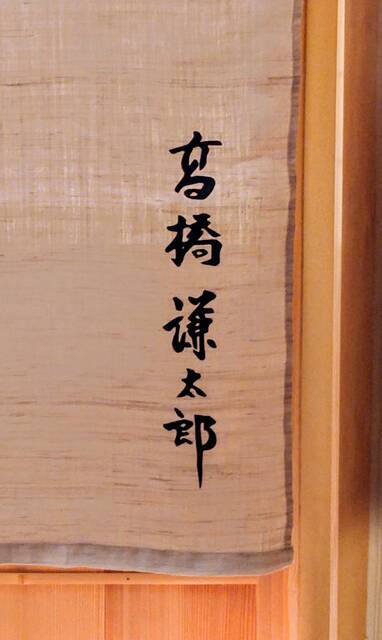 高橋謙太郎